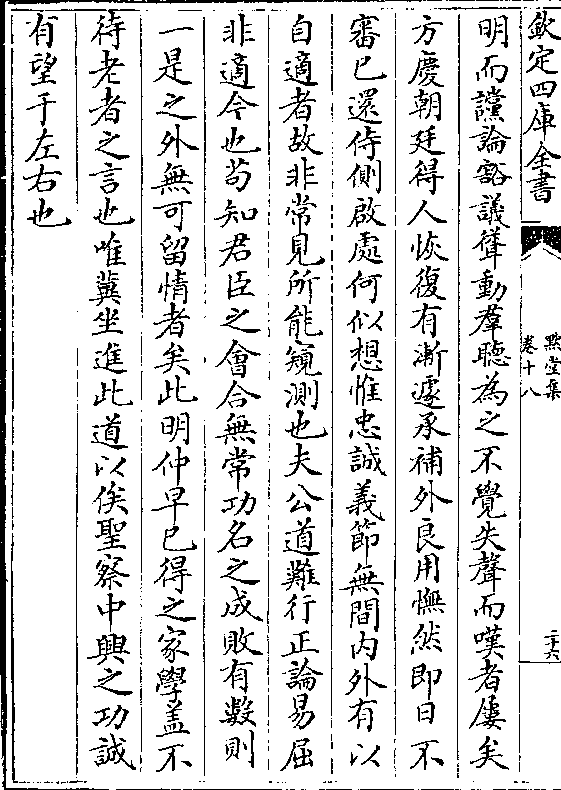 欽定四庫全書
默堂集
卷十八
二十六
明而讜論豁議聳動羣聽為之不覺失聲而嘆者屢矣
方慶朝廷得人恢復有漸遽承補外良用憮然即日不
審已還侍側啟處何似想惟忠誠義節無間内外有以
自適者故非常見所能窺測也夫公道難行正論易屈
非適今也苟知君臣之會合無常功名之成敗有數則
一是之外無可留情者矣此明仲早已得之家學盖不
待老者之言也唯冀坐進此道以俟聖察中興之功誠
有望于左右也